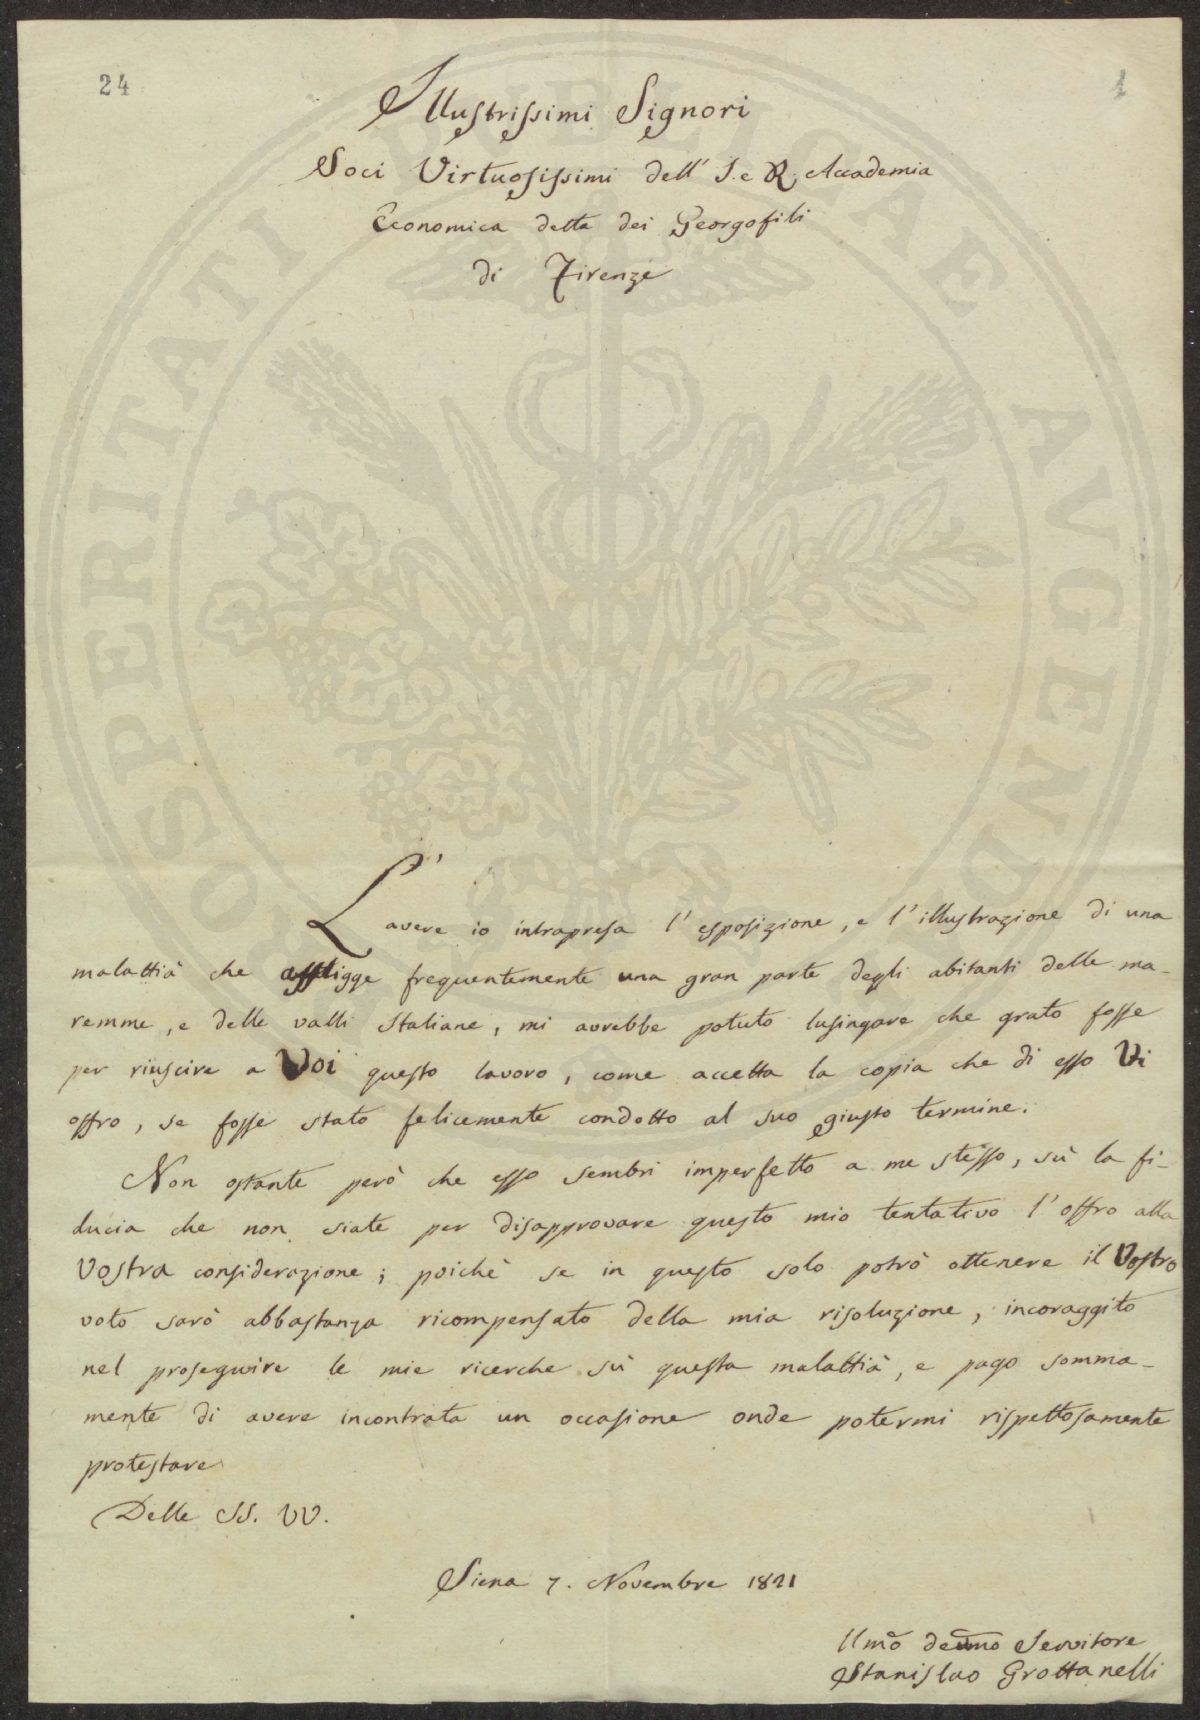 24
1
Illustrissimi Signori
Soci Virtuosissimi dell' I. e R. Accademia
Economica detta dei Georgofili
di Firenze
L' avere io intrapresa l' esposizione, e l' illustrazione di una
malattia che affligge frequentemente una gran parte degli abitanti delle ma-
remme, e delle valli Italiane, mi avrebbe potuto lusingare che grato fosse
per riuscire a Voi questo lavoro, come accetta la copia che di esso Vi
offro, se fosse stato felicemente condotto al suo giusto termine.
Non ostante però che esso sembri imperfetto a me stesso, sù la fi-
ducia che non siate per disapprovare questo mio tentativo l' offro alla
Vostra considerazione; poichè se in questo solo potrò ottenere il Vostro
voto sarò abbastanza ricompensato della mia risoluzione, incoraggito
nel proseguire le mie ricerche sù questa malattia, e pago somma-
mente di avere incontrata un occasione onde potermi rispettosamente
protestare
Delle SS. VV.
Siena 7. Novembre 1821
Umo devmo Servitore
Stanislao Grottanelli
PROSPERITATI PUBLICAE AUGENDAE